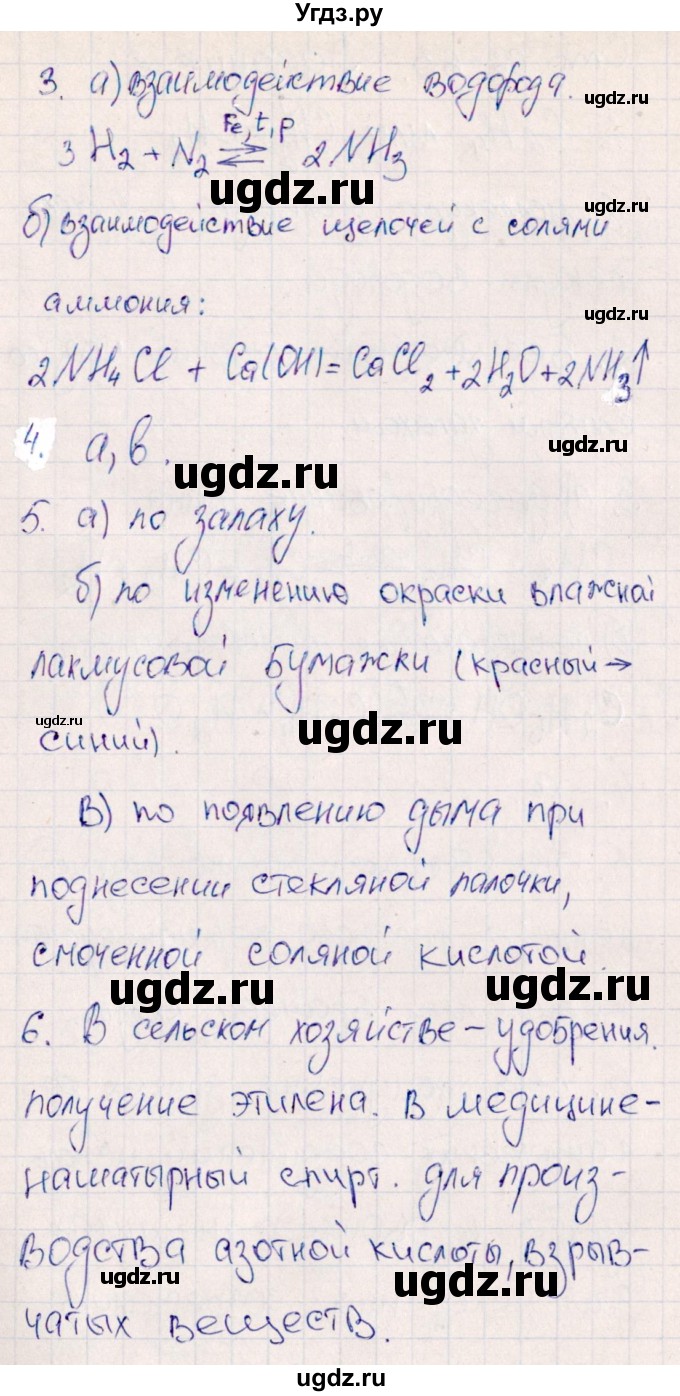 Угдз.ру
3. а) взаимодействие водорода.
ugdz.ru
Fe, t, p
3H2 + N2 ⇄ 2NH3
ugdz.ru
ugdz.ru
б) взаимодействие щелочей с солями
аммония:
ugdz.ru
2NH4Cl + Ca(OH)= CaCl2 +2H2O+2NH3↑
4. а, в.
ugdz.ru
ugdz.ru
5. а) по запаху.
ugdz.ru
б) по изменению окраски влажной
лакмусовой бумажки (красный→
ugdz.ru
ugdz.ru
синий).
в) по появлению дыма при
поднесении стекляной палочки,
смоченной соляной кислотой.
ugdz.ru
ugdz.ru
6. В сельском хозяйстве – удобрения.
получение этилена. В медицине–
нашатырный спирт. для произ–
водства азотной кислоты, взрыв–
ugdz.ru
ugdz.ru
чатых веществ.
ugdz.ru